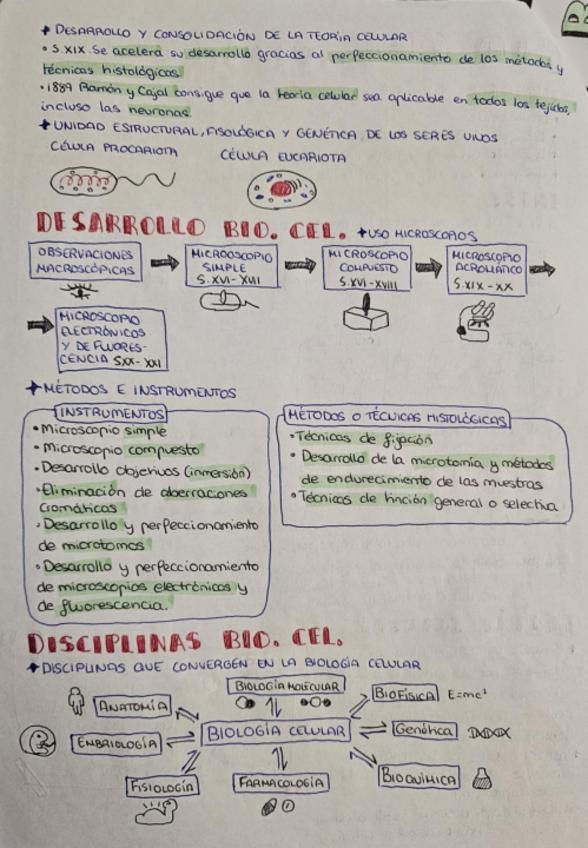 + DESARROLLO Y CONSOLIDACIÓN DE LA TEORÍA CELULAR
• S.XIX. Se acelera su desarrollo gracias al perfeccionamiento de los métodos y
técnicas histológicas.
• 1889 Ramón y Cajal consigue que la teoría celular sea aplicable en todos los tejidos,
incluso las neuronas.
+ UNIDAD ESTRUCTURAL, FISIOLÓGICA Y GENÉTICA DE LOS SERES VIVOS
CÉLULA PROCARIOTA CÉLULA EUCARIOTA
DESARROLLO BIO. CEL. + USO MICROSCOPIOS
OBSERVACIONES
MACROSCÓPICAS
MICROOSCOPIO
SIMPLE
S.XVI-XVII
MICROSCOPIO
COMPUESTO
S.XVI-XVIII
MICROSCOPIO
ACROMÁTICO
S.XIX-XX
MICROSCOPIO
ELECTRÓNICOS
Y DE FLUORES-
CENCIA SXX-XXI
+ MÉTODOS E INSTRUMENTOS
INSTRUMENTOS
• Microscopio simple
• Microscopio compuesto
• Desarrollo objetivos (inmersión)
• Eliminación de aberraciones
cromáticas
• Desarrollo y perfeccionamiento
de microtomos
• Desarrollo y perfeccionamiento
de microscopios electrónicos y
de fluorescencia.
MÉTODOS O TÉCNICAS HISTOLÓGICAS
• Técnicas de fijación
• Desarrollo de la microtomía y métodos
de endurecimiento de las muestras
• Técnicas de tinción general o selectiva
DISCIPLINAS BIO. CEL.
+ DISCIPLINAS QUE CONVERGEN EN LA BIOLOGÍA CELULAR
ANATOMÍA
BIOLOGÍA MOLECULAR
BIOFÍSICA E=mc²
EMBRIOLOGÍA
BIOLOGÍA CELULAR
Genética
FISIOLOGÍA
FARMACOLOGÍA
BIOQUÍMICA